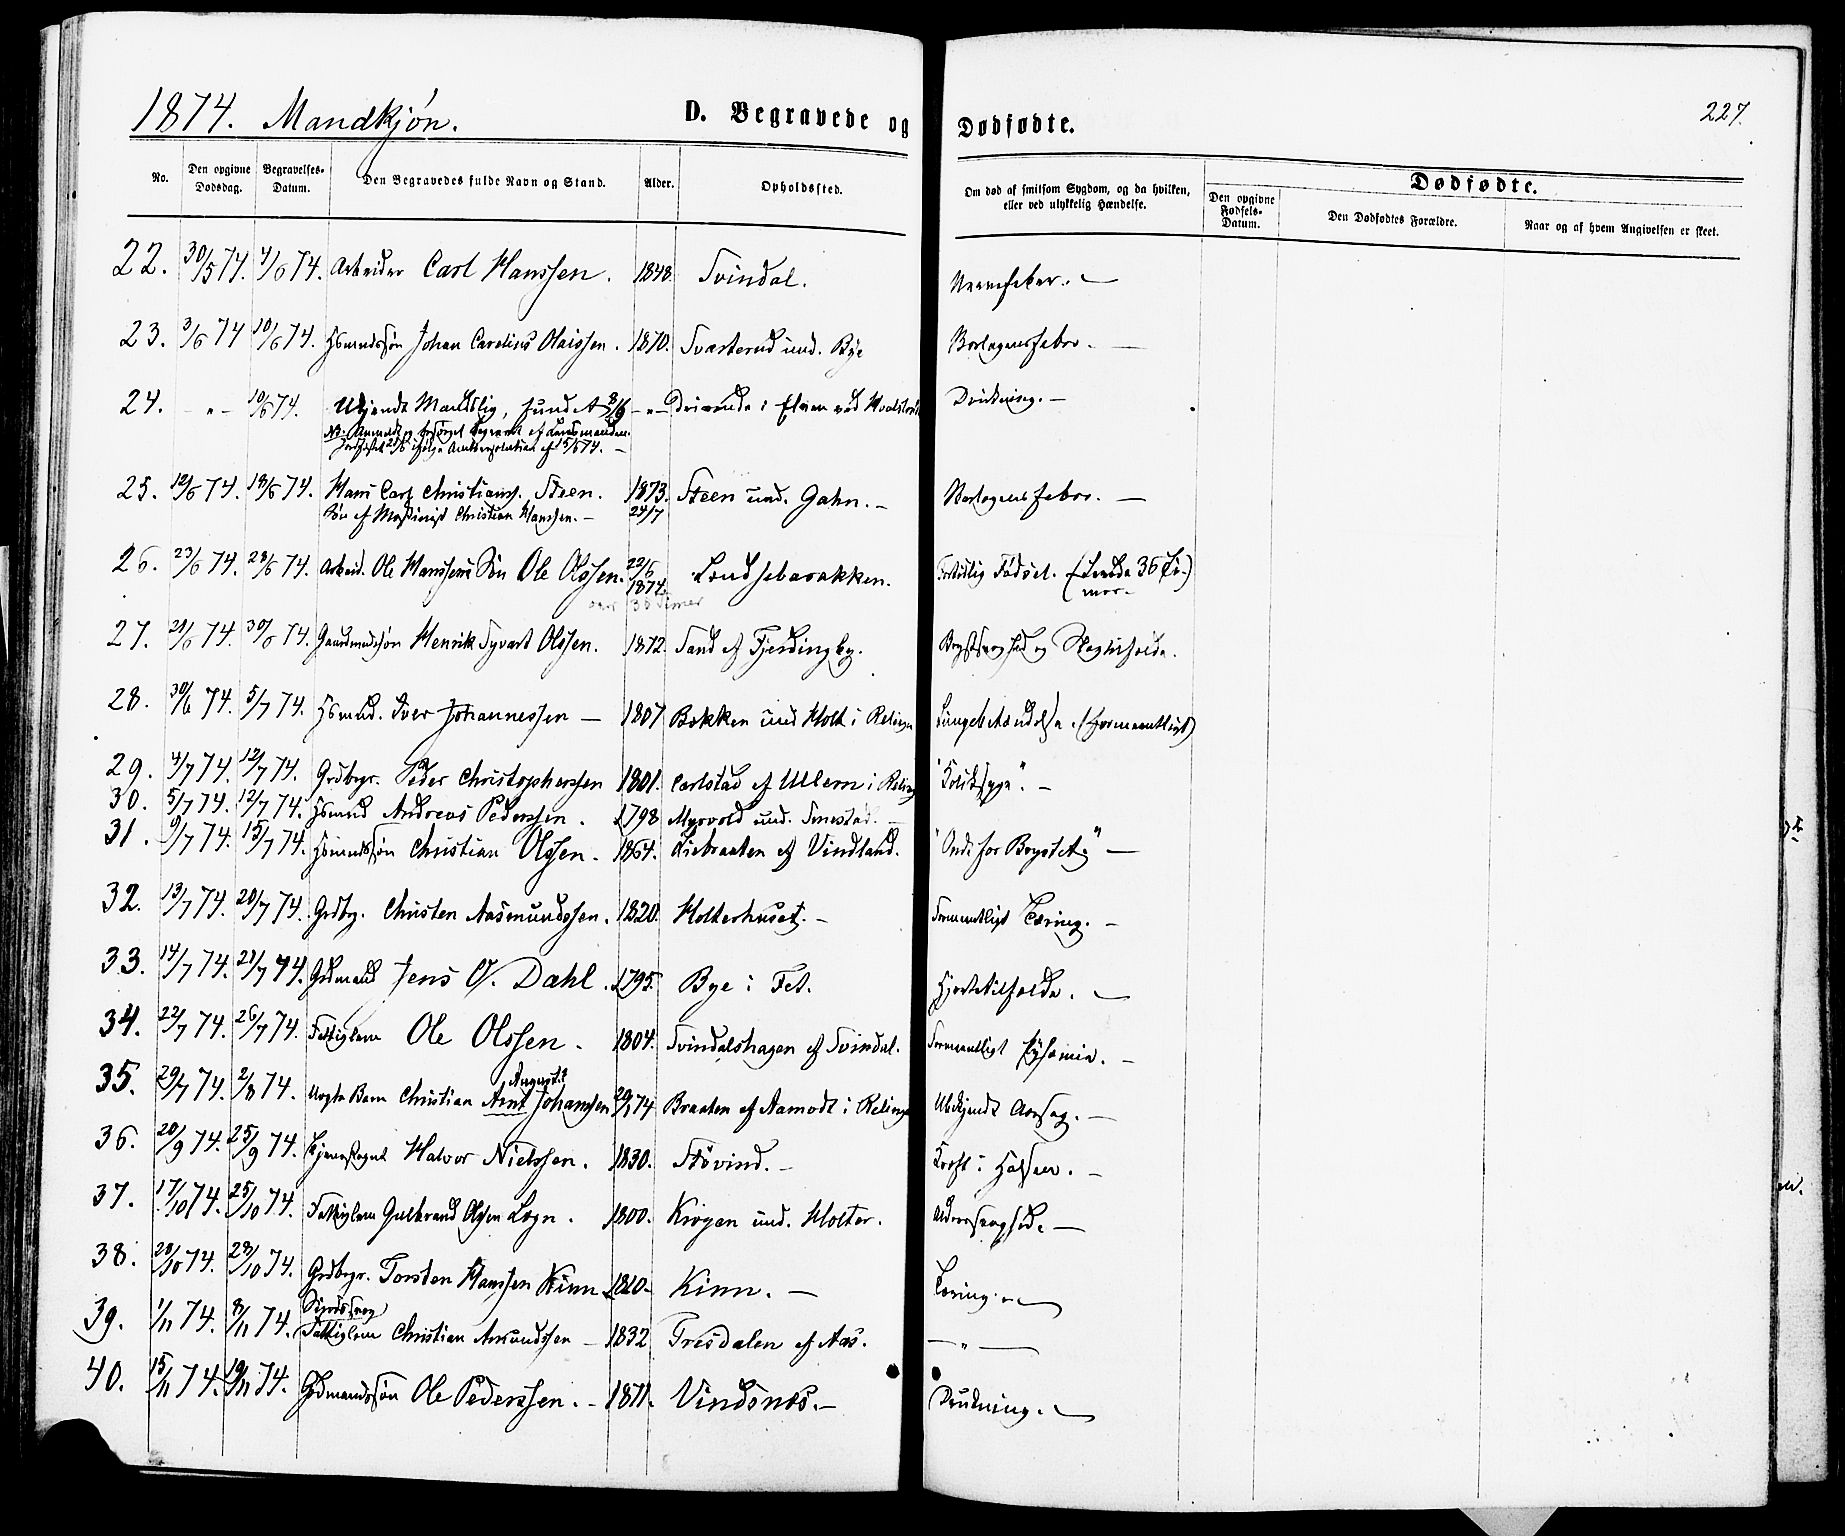 1874. Mandkjön.
D. Begravede og Dødfødte.
227.
No.
Den opgivne Dødsdag.
Begravelses-Datum.
Den Begravedes fulde Navn og Stand.
Alder.
Opholdssted.
Om død af smitsom Sygdom, og da hvilken, eller ved ulykkelig Hændelse.
Dødfødte.
Den opgivne Fødsels-Datum.
Den Dødfødtes Forældre.
Naar og af hvem Angivelsen er skeet.
22. 30/5 74. 4/6 74. Arbeider Carl Hanssen. 1848. Svindal. Nervefeber. -
23. 3/6 74 10/6 74. Hsmndssøn Johan Carelius Olaissen. 1870. Svarterud und. Bye Barlagensfeber. -
24. - " - 10/6 74. Ukjendt Mandslig, fundet 8/6 - " - Drivende i Elven ved Drukning. -
NB. Anmeldt og besørget begravet af Lensmanden.
15/6 74. -
25. 12/6 74. 18/6 74. Hans Carl Christians. Steen. 1873. Steen und. Gahn. -
Søn af Maskinist Christian Hanssen. - 24/7
26. 23/6 74. 28/6 74. Arbeid. Ole Hanssens Søn Ole Olssen. 22/6 1874. Lendsebarakken. Fortidlig Födsel. (Levede 36 Ti-
mer.)
27. 21/6 74. 30/6 74. Gaardmndssøn Henrik Syvert Olssen. 1872. Sand af Fjerdingby. Brystsvaghed og
28. 30/6 74. 5/7 74. Hsmnd. Iver Johannessen - 1807. Bakken und Holt i Relingen Lungebetændelse. (formentligt)
29. 4/7 74. 12/7 74. Grdbrgr. Peder Christophersen 1801. Carlstad af Ullern i Reling "Koliksyge". -
30. 5/7 74. 12/7 74. Hsmnd Andreas Pederssen. 1798 Myrvold und. Tuestad. -
31. 9/7 74. 15/7 74. Hsmndssøn Christian Olssen. 1864. Liebraaten af Vindland. "Ondt for Brystet." -
32. 13/7 74. 20/7 74. Grdbg. Christen Aasmundssen. 1820. Holterhuset. - Formentligt Tæring. -
33. 14/7 74. 21/7 74. Grdmand Jens O. Dahl. 1795. Bye i Fet. Hjertetilfælde. -
34. 22/7 74. 26/7 74. Fattiglem Ole Olssen. 1804. Svindalshagen af Svindal. Formentligt Pyæmie. -
35. 29/7 74. 2/8 74. Uægte Barn Christian Arnt Johanssen 29/1 74 Braaten af Aamodt i Relingen Ubekjendt Aarsag. -
August?
36. 20/9 74. 25/9 74. Halvor Nielssen. 1830. Stövind. - Kræft i Halsen. -
37. 17/10 74. 25/10 74. Fattiglem Gulbrand Olssen Logn. 1800. Krogen und. Holter. Alderssvaghed. -
38. 20/10 74. 28/10 74. Grdbrgr. Torsten Hanssen Kinn 1810. Kinn. - Tæring. -
39. 1/11 74. 8/11 74. Sindssvag
Fattiglem Christian Amundssen - 1832 Tresdalen af Aas. - " -
40. 15/11 74. 19/11 74. Grdmandssøn Ole Pederssen. - 1871. Vindsnæs. - Drukning. -